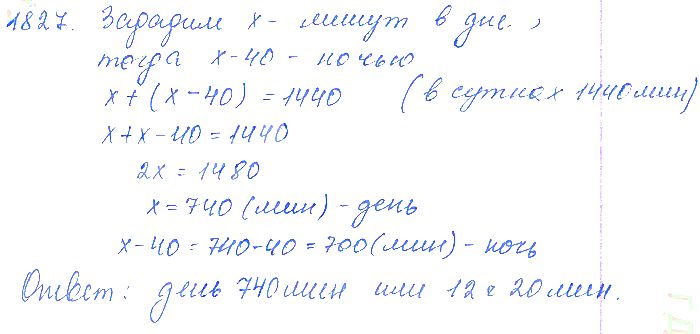 1827. Зададим x - минут в дне.,
тогда x-40 - ночью
x+(x-40) = 1440 (в сутках 1440 мин)
x+x-40=1440
2x=1480
x=740 (мин) - день
x-40=740-40=700 (мин) - ночь
Ответ: день 740 мин или 12 ч 20 мин.